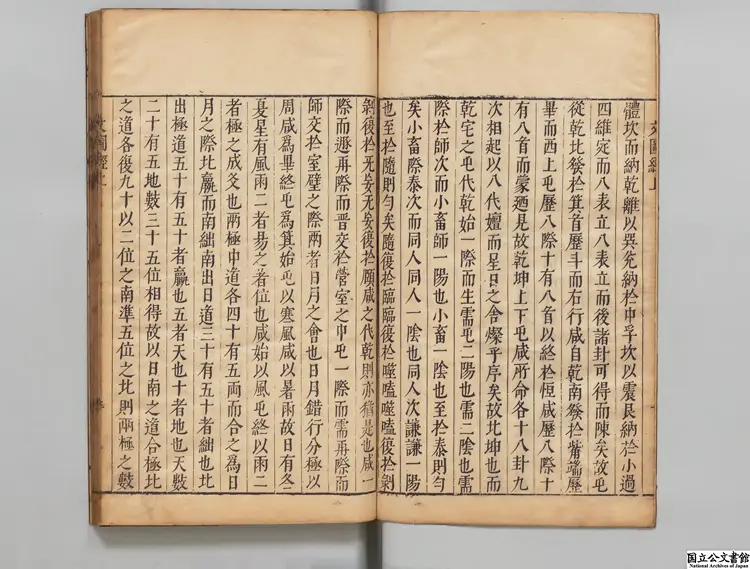 文圖經上
體坎而納乾離以巽兌納於中孚坎以震艮納於小過
四維定而八表立八表立而後諸卦可得而陳矣故屯
從乾北發於箕首歷斗而右行咸自乾南發於觜端歷
畢而西上屯歷八際十有八首以終於恆咸歷八際十
有八首而蒙廼是故乾坤上下屯咸所命各十八卦九
次相起以八代嬗而星日之舍燦乎序矣故北坤也而
乾宅之屯代乾始一際而生需屯二陽也需二陰也需
際於師次而小畜師一陽也小畜一陰也至於泰則勻
矣小畜際泰次而同人同人一陰也同人次謙謙一陽
也至於隨則勻矣隨復於臨臨復於噬嗑噬嗑復於剝
剝復於无妄无妄復於頤咸之代乾則亦猶是也咸一
際而遯再際而晉交於營室之中屯一際而需再際而
師交於室壁之際兩者日月之會也日月錯行分極以
周咸為畢終屯為箕始屯以寒風咸以暑雨故日有冬
夏星有風雨二者易之著位也咸始以風屯終以雨二
者極之成爻也兩極中道各四十有五兩而合之為日
月之際北贏而南絀南出日道三十有五十者絀也北
出極道五十有五十者贏也五者天也十者地也天數
二十有五地數三十五位相得故以日南之道合極北
之道各復九十以二位之南準五位之北則兩極之數
文圖經上
國立公文書館
National Archives of Japan